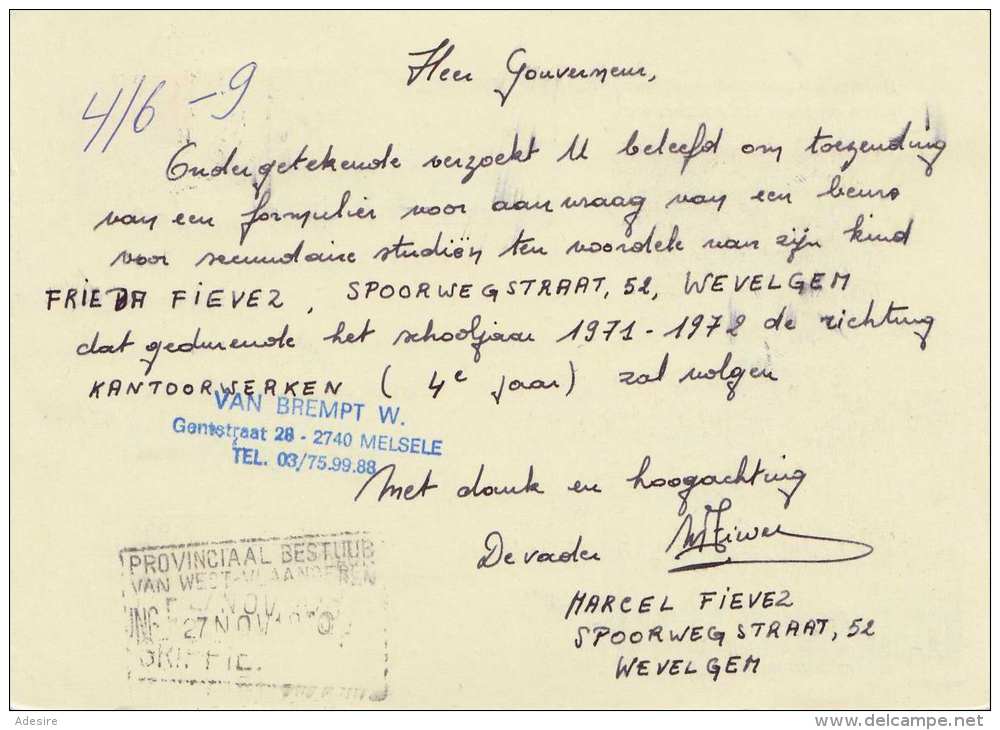 Heer Gouverneur,
4/6 - 9
Ondergetekende verzoekt U beleefd om toezending
van een formulier voor aanvraag van een beurs
voor secundaire studiën ten voordele van zijn kind
FRIEDA FIEVEZ, SPOORWEGSTRAAT, 52, WEVELGEM
dat gedurende het schooljaar 1971-1972 de richting
KANTOORWERKEN (4e jaar) zal volgen
VAN BREMPT W.
Gentstraat 28 - 2740 MELSELE
TEL. 03/75.99.88
Met dank en hoogachting
De vader
MARCEL FIEVEZ
SPOORWEGSTRAAT, 52
WEVELGEM
PROVINCIAAL BESTUUR
VAN WEST-VLAANDEREN
27 NOV
GRIFFIE.
Adesire
delcampe.net